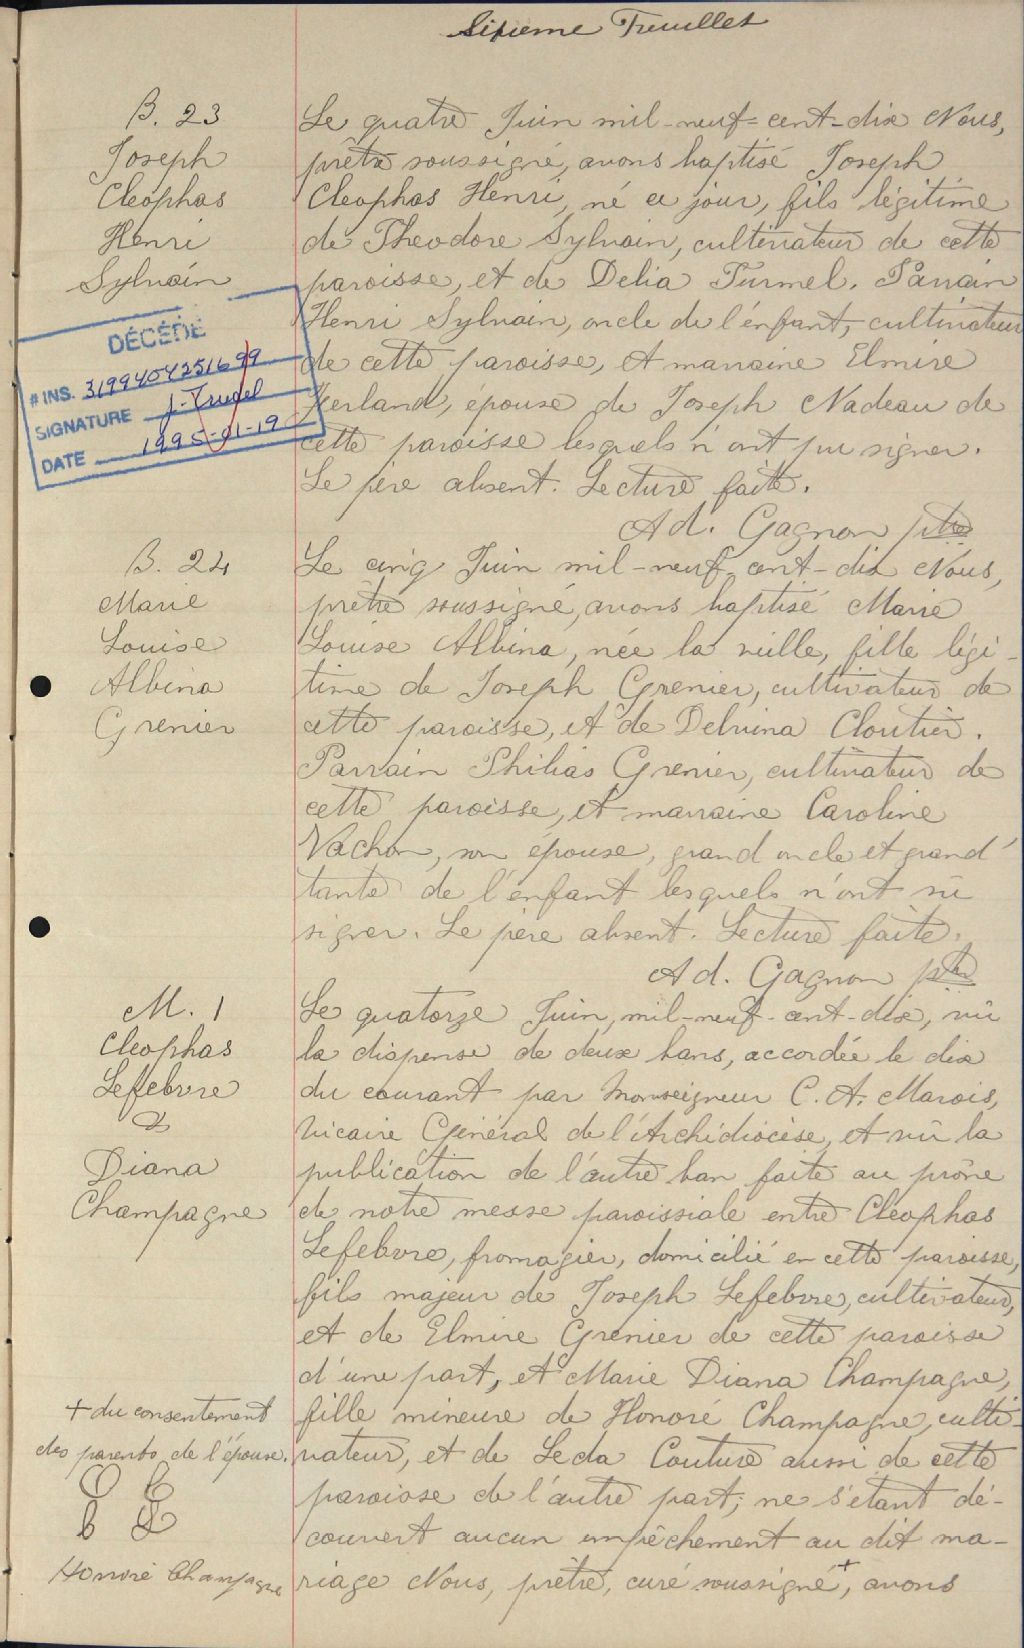 Sixieme Feuillet
B. 23
Joseph
Cleophas
Henri
Sylvain
Le quatre Juin mil-neuf-cent-dix Nous,
prêtre soussigné, avons baptisé Joseph
Cleophas Henri, né ce jour, fils légitime
de Theodore Sylvain, cultivateur de cette
paroisse, et de Delia Turmel. Parrain
Henri Sylvain, oncle de l'enfant, cultivateur
de cette paroisse, et marraine Elmire
Ferland, épouse de Joseph Nadeau de
cette paroisse lesquels n'ont pu signer.
Le père absent. Lecture faite.
Ad. Gagnon ptre
DÉCÉDÉ
# INS. 3199404251699
SIGNATURE J. Trudel
DATE 1995-01-19
B. 24
Marie
Louise
Albina
Grenier
Le cinq Juin mil-neuf-cent-dix Nous,
prêtre soussigné, avons baptisé Marie
Louise Albina, née la veille, fille légi-
time de Joseph Grenier, cultivateur de
cette paroisse, et de Delvina Cloutier.
Parrain Philias Grenier, cultivateur de
cette paroisse, et marraine Caroline
Vachon, son épouse, grand oncle et grand'
tante de l'enfant lesquels n'ont su
signer. Le père absent. Lecture faite.
Ad. Gagnon ptre
M. 1
Cleophas
Lefebvre
&
Diana
Champagne
Le quatorze Juin, mil-neuf-cent-dix, vû
la dispense de deux bans, accordée le dix
du courant par Monseigneur C. A. Marois,
Vicaire Général de l'Archidiocèse, et vû la
publication de l'autre ban faite au prône
de notre messe paroissiale entre Cléophas
Lefebvre, fromagier, domicilié en cette paroisse,
fils majeur de Joseph Lefebvre, cultivateur,
et de Elmire Grenier de cette paroisse
d'une part, et Marie Diana Champagne,
fille mineure de Honoré Champagne, culti-
vateur, et de Leda Couture aussi de cette
paroisse de l'autre part; ne s'étant dé-
couvert aucun empêchement au dit ma-
riage Nous, prêtre, curé soussigné +, avons
+ du consentement
des parents de l'épouse.
Honoré Champagne